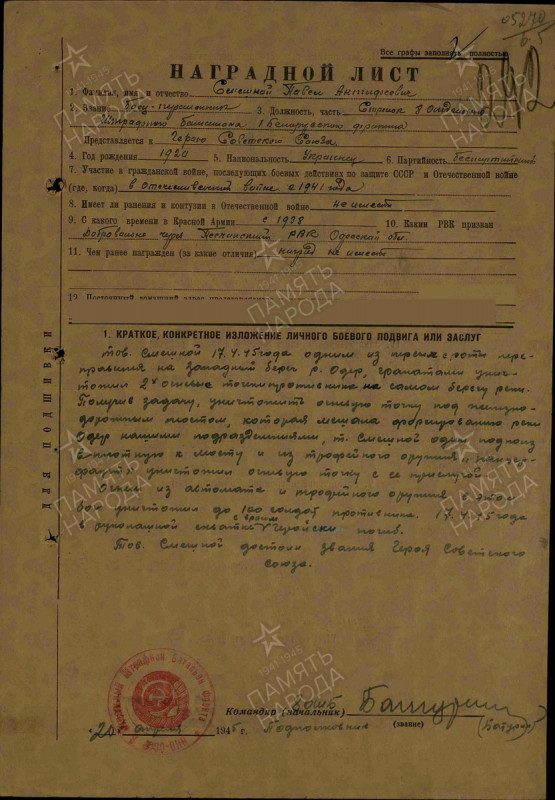 05270
65
Все графы заполнять полностью
242
НАГРАДНОЙ ЛИСТ
1. Фамилия, имя и отчество Смешной Павел Антифеевич
2. Звание Боец-переменник 3. Должность, часть Стрелок 8 Отдельного
Штрафного Батальона 1 Белорусского фронта
Представляется к Герою Советского Союза
4. Год рождения 1920 5. Национальность Украинец 6. Партийность беспартийный
7. Участие в гражданской войне, последующих боевых действиях по защите СССР и Отечественной войне
(где, когда) в отечественной войне с 1941 года
8. Имеет ли ранения и контузии в Отечественной войне не имеет
9. С какого времени в Красной Армии с 1938 10. Каким РВК призван
Добровольно через Песчанский РВК Одесской обл.
11. Чем ранее награжден (за какие отличия) наград не имеет
12. Постоянный домашний адрес
1. КРАТКОЕ, КОНКРЕТНОЕ ИЗЛОЖЕНИЕ ЛИЧНОГО БОЕВОГО ПОДВИГА ИЛИ ЗАСЛУГ
Тов. Смешной 17.4.45 года одним из первых роты пере-
правился на западный берег р. Одер, гранатами унич-
тожил 2 огневые точки противника на самом берегу реки.
Получив задачу, уничтожить огневую точку под железно-
дорожным мостом, которая мешала форсированию реки
Одер нашими подразделениями, т. Смешной один подполз
вплотную к мосту и из трофейного оружия
уничтожил огневую точку с ее прислугой.
Огнем из автомата и трофейного оружия в этом
бою уничтожил до 100 солдат противника. 17.4.45 года
в рукопашной схватке с врагом геройски погиб.
Тов. Смешной достоин звания Героя Советского
Союза.
ДЛЯ ПОДШИВКИ
8 ОШБ
Командир (начальник) Батурин
(звание) (Батурин)
"20" апреля 1945 г. Подполковник
ПАМЯТЬ НАРОДА
1941-1945